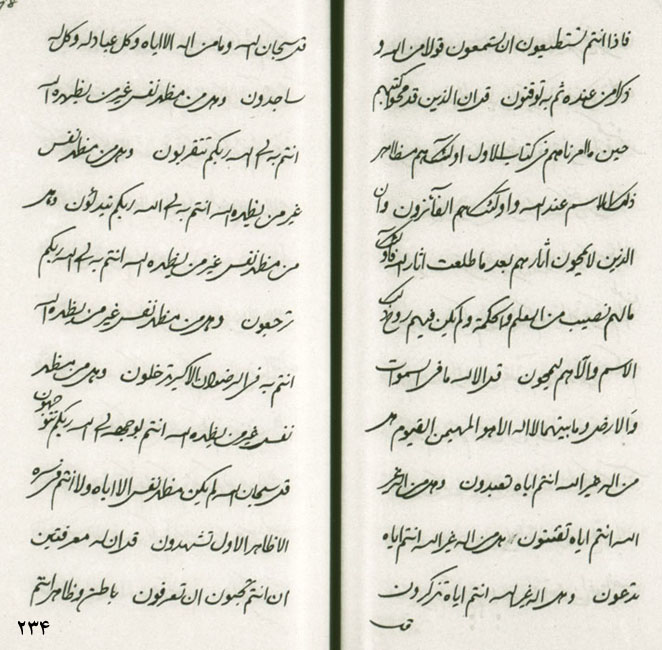 فاذا انتم تستطيعون ان تستمعون قولا من الله و
ذكرا من عنده ثم به توقنون قد ان الذين قد محوا كتبهم
حين ما امرناهم فى كتاب الاول اولئك هم مظاهر
ذلك الاسم عند الله و اولئك هم الفائزون وان
الذين لا يمحون آثارهم بعد ما طلعت آثار الله فاولئك
مالهم نصيب من العلم والحكمة ولم يكن فيهم روح ذلك
الاسم والا هم ليمحون قد لله ما فى السموات
والارض وما بينهما لا اله الا هو المهيمن القيوم هل
من اله غير الله انتم اياه تعبدون وهل من اله غير
الله انتم اياه تقنتون هل من اله غير الله انتم اياه
تدعون وهل اله غير الله انتم اياه تذكرون
قد
قد سبحان الله وما من اله الا اياه وكل عباد له وكل له
ساجدون وهل من مظهر نفس غير من يظهره الله
انتم به الى الله ربكم تتقربون وهل من مظهر نفس
غير من يظهره الله انتم به الى الله ربكم وهل
من مظهر نفس غير من يظهره الله انتم به الى الله ربكم
ترجعون وهل من مظهر نفس غير من يظهره الله
انتم به فى رضوان الاكبر تدخلون وهل من مظهر
نفس غير من يظهره الله انتم بوجهه الى الله ربكم تتوجهون
قد سبحان الله لم يكن مظهر نفس الا اياه ولا انتم فى
الا ظاهر الاول تشهدون قد ان له معرفتين
ان انتم تحبون ان تعرفون باطن وظاهر انتم
٢٣۴